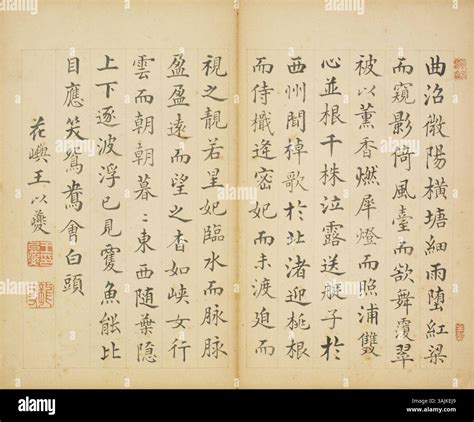 曲沼微陽橫塘細雨墮紅梁
而窺影倚風臺而欲舞覆翠
被以薰香燃犀燈而照浦雙
心並根千株泣露送艇子於
西州聞棹歌於北渚迎桃根
而待檝逢密妃而未渡迫而
視之靚若星妃臨水而脉脉
盈盈遠而望之杳如峽女行
雲而朝朝暮〻東西随葉隐
上下逐波浮已見雙魚能比
目應笑鴛鴦會白頭
花嶼王以夔
alamy
Image ID: 3AJKEJ9
www.alamy.com